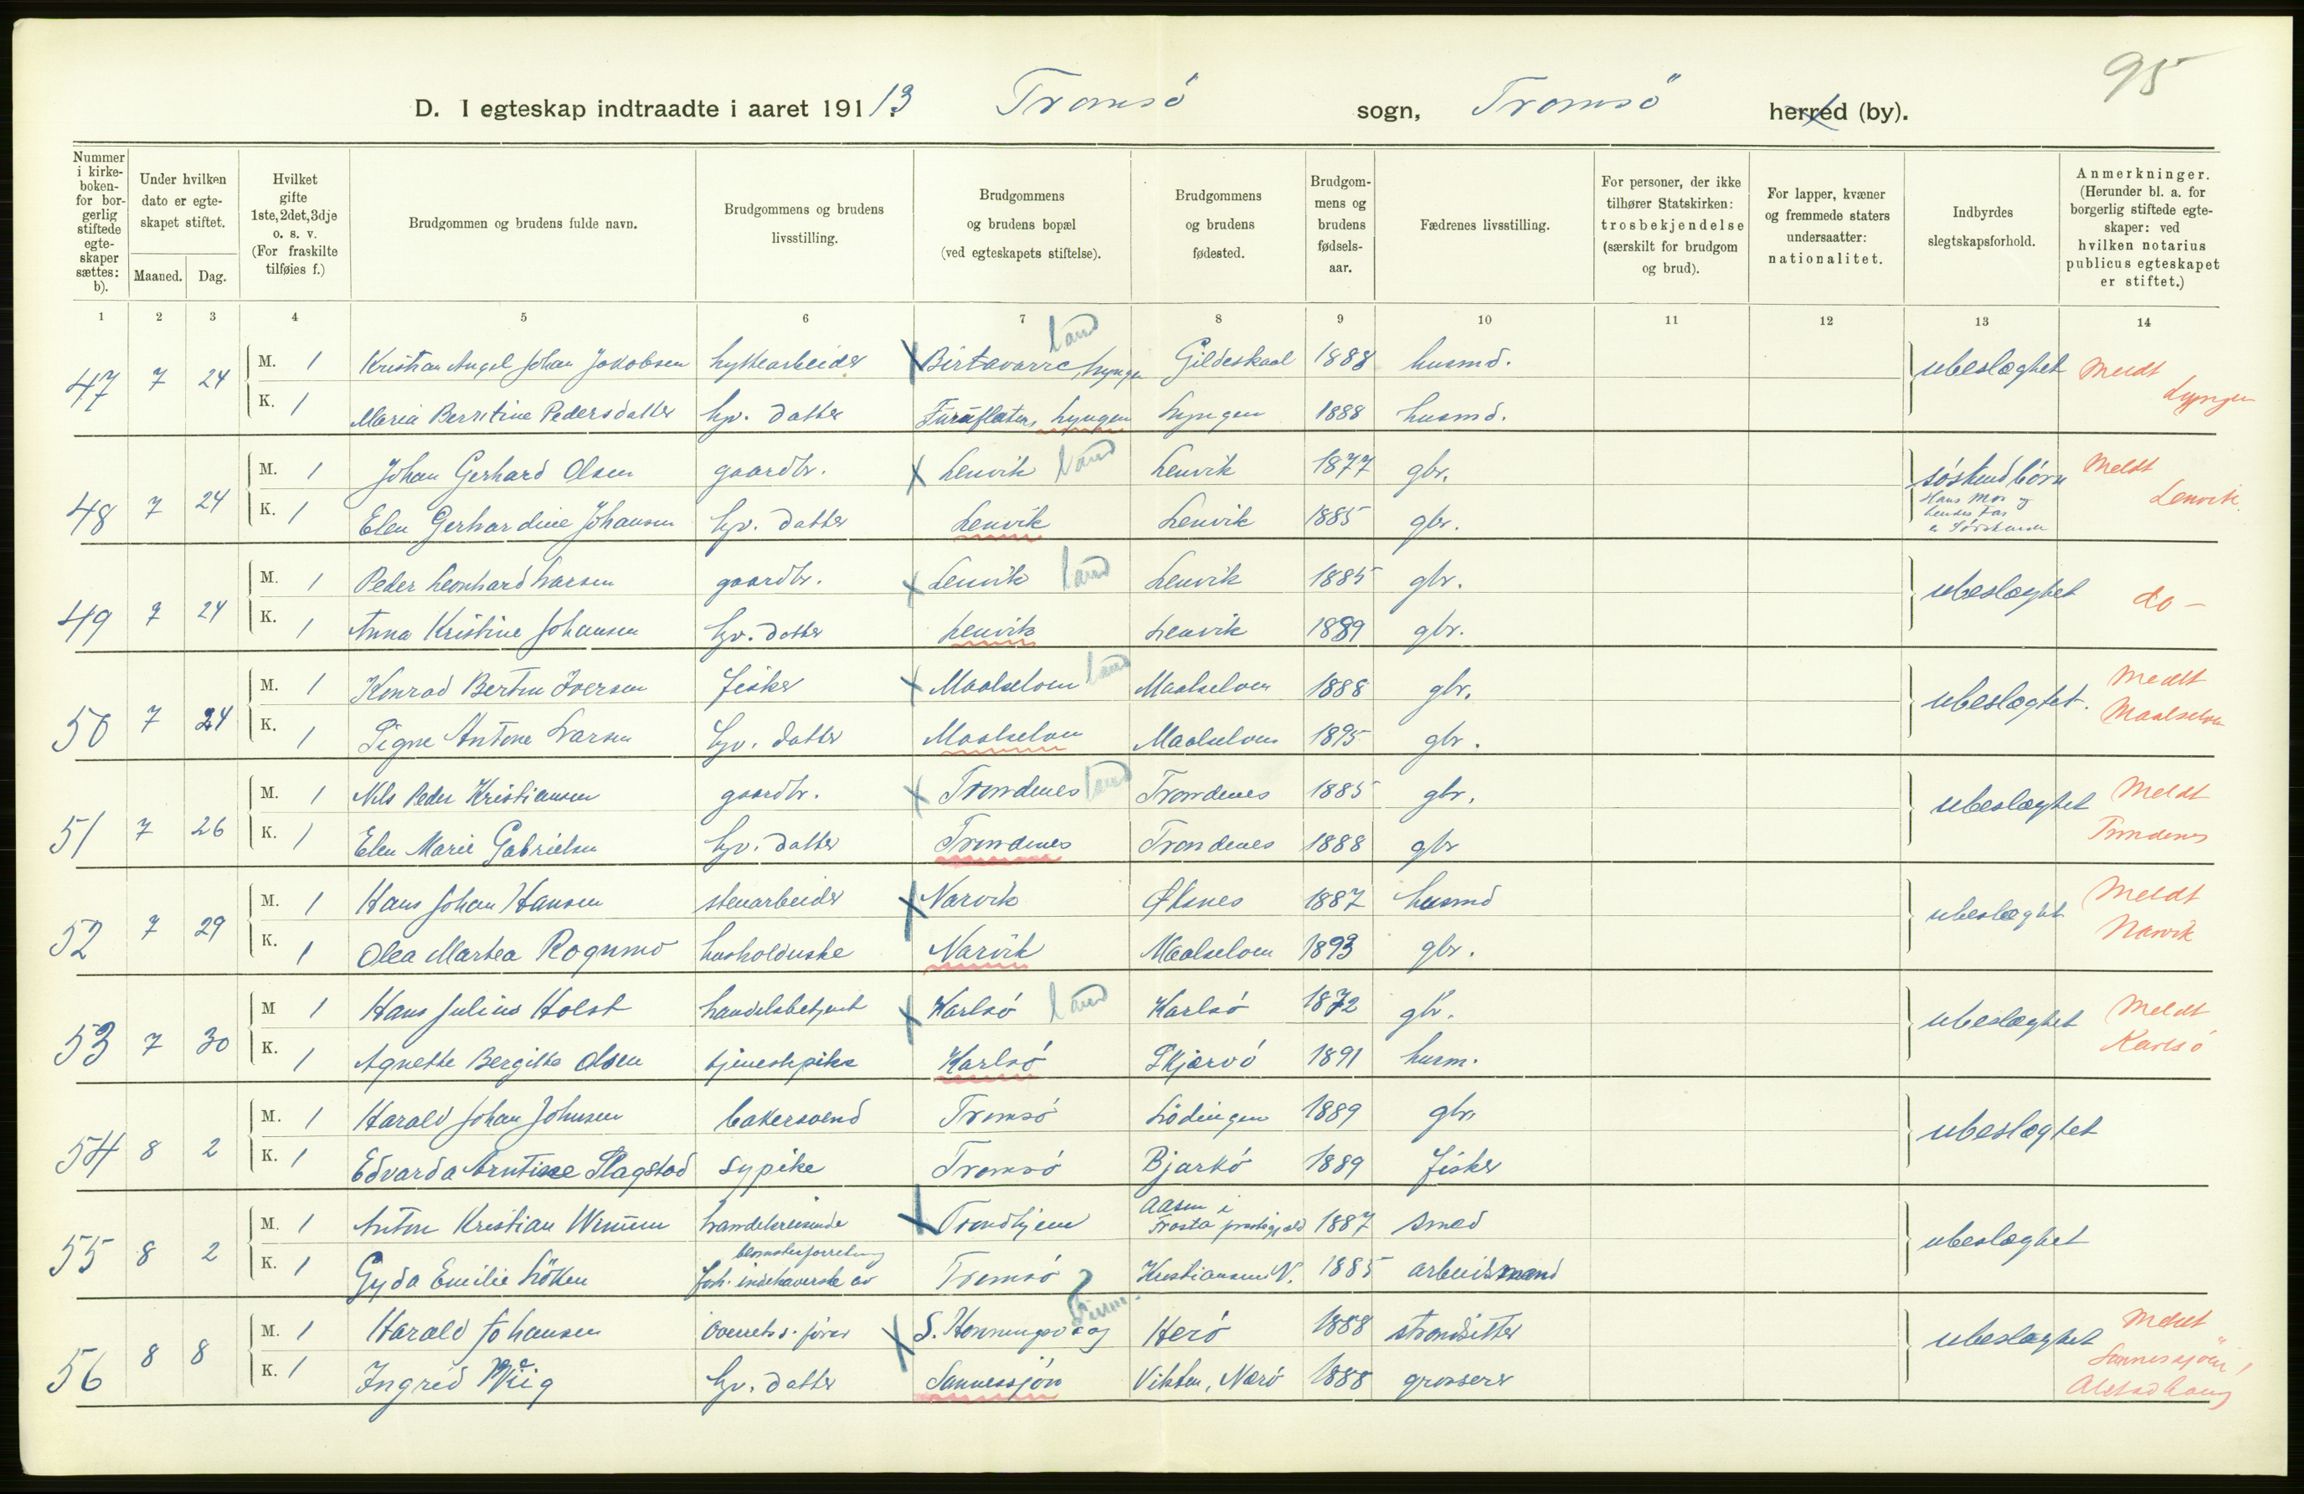 95
D. I egteskap indtraadte i aaret 1913. Tromsø sogn, Tromsö herred (by).
Nummer i kirkeboken- for borgerlig stiftede egteskaper sættes: b).
Under hvilken dato er egteskapet stiftet.
Maaned. Dag.
Hvilket gifte 1ste, 2det, 3dje o. s. v. (For fraskilte tilføies f.)
Brudgommen og brudens fulde navn.
Brudgommens og brudens livsstilling.
Brudgommens og brudens bopæl (ved egteskapets stiftelse).
Brudgommens og brudens fødested.
Brudgommens og brudens fødselsaar.
Fædrenes livsstilling.
For personer, der ikke tilhører Statskirken: trosbekjendelse (særskilt for brudgom og brud).
For lapper, kvæner og fremmede staters undersaatter: nationalitet.
Indbyrdes slegtskapsforhold.
Anmerkninger. (Herunder bl. a. for borgerlig stiftede egteskaper: ved hvilken notarius publicus egteskapet er stiftet.)
1 2 3 4 5 6 7 8 9 10 11 12 13 14
47 7 24 M. 1 Kristian Angel Johan Jakobsen hyttearbeider Birtavarre, Lyngen land Gildeskaal 1888 husmd. ubeslægtet Meldt Lyngen
K. 1 Maria Berntine Pedersdatter hv. datter Furuflaten, Lyngen Lyngen 1888 husmd.
48 7 24 M. 1 Johan Gerhard Olsen gaardbr. Lenvik land Lenvik 1877 gbr. søskendbørn Meldt Lenvik
K. 1 Elen Gerhardine Johansen hv. datter Lenvik Lenvik 1885 gbr. Hans Mor og hendes Far er Sødskende
49 7 24 M. 1 Peder Leonhard Larsen gaardbr. Lenvik land Lenvik 1885 gbr. ubeslægtet do –
K. 1 Anna Kristine Johansen hv. datter Lenvik Lenvik 1889 gbr.
50 7 24 M. 1 Konrad Berton Iversen fisker Maalselven land Maalselven 1888 gbr. ubeslægtet. Meldt Maalselven
K. 1 Signe Antone Larsen hv. datter Maalselven Maalselven 1895 gbr.
51 7 26 M. 1 Nils Peder Kristiansen gaardbr. Trondenes land Trondenes 1885 gbr. ubeslægtet Meldt Trondenes
K. 1 Elen Marie Gabrielsen hv. datter Trondenes Trondenes 1888 gbr
52 7 29 M. 1 Hans Johan Hansen stenarbeider Narvik Øksnes 1887 husmd ubeslægtet Meldt Narvik
K. 1 Olea Martea Rognmo husholderske Narvik Maalselven 1893 gbr.
53 7 30 M 1 Hans Julius Holst handelsbetjent Karlsö land Karlsö 1872 gbr. ubeslægtet Meldt Karlsö
K. 1 Agnethe Bergitte Olsen tjenestepike Karlsö Skjærvö 1891 husm.
54 8 2 M. 1 Harald Johan Johnsen bakersvend Tromsö Lödingen 1889 gbr. ubeslægtet
K. 1 Edvarda Arntine Slagstad sypike Tromsö Bjarkö 1889 fisker
55 8 2 M. 1 Anton Kristian Winum handelsreisende Trondhjem Aasen i Frosta prestegjeld 1887 smed ubeslægtet
K. 1 Gyda Emilie Löken forh. indehaverske av blomsterforretning Tromsö Kristiansund N. 1885 arbeidsmand
56 8 8 M. 1 Harald Johansen overrets s. förer S. Honningsvaag Finm. ? Herö 1888 strandsitter ubeslægtet Meldt Sannessjöen, Alstadhaug
K. 1 Ingrid Wiig hv. datter Sannessjön Vikten, Nærö 1888 grosserer